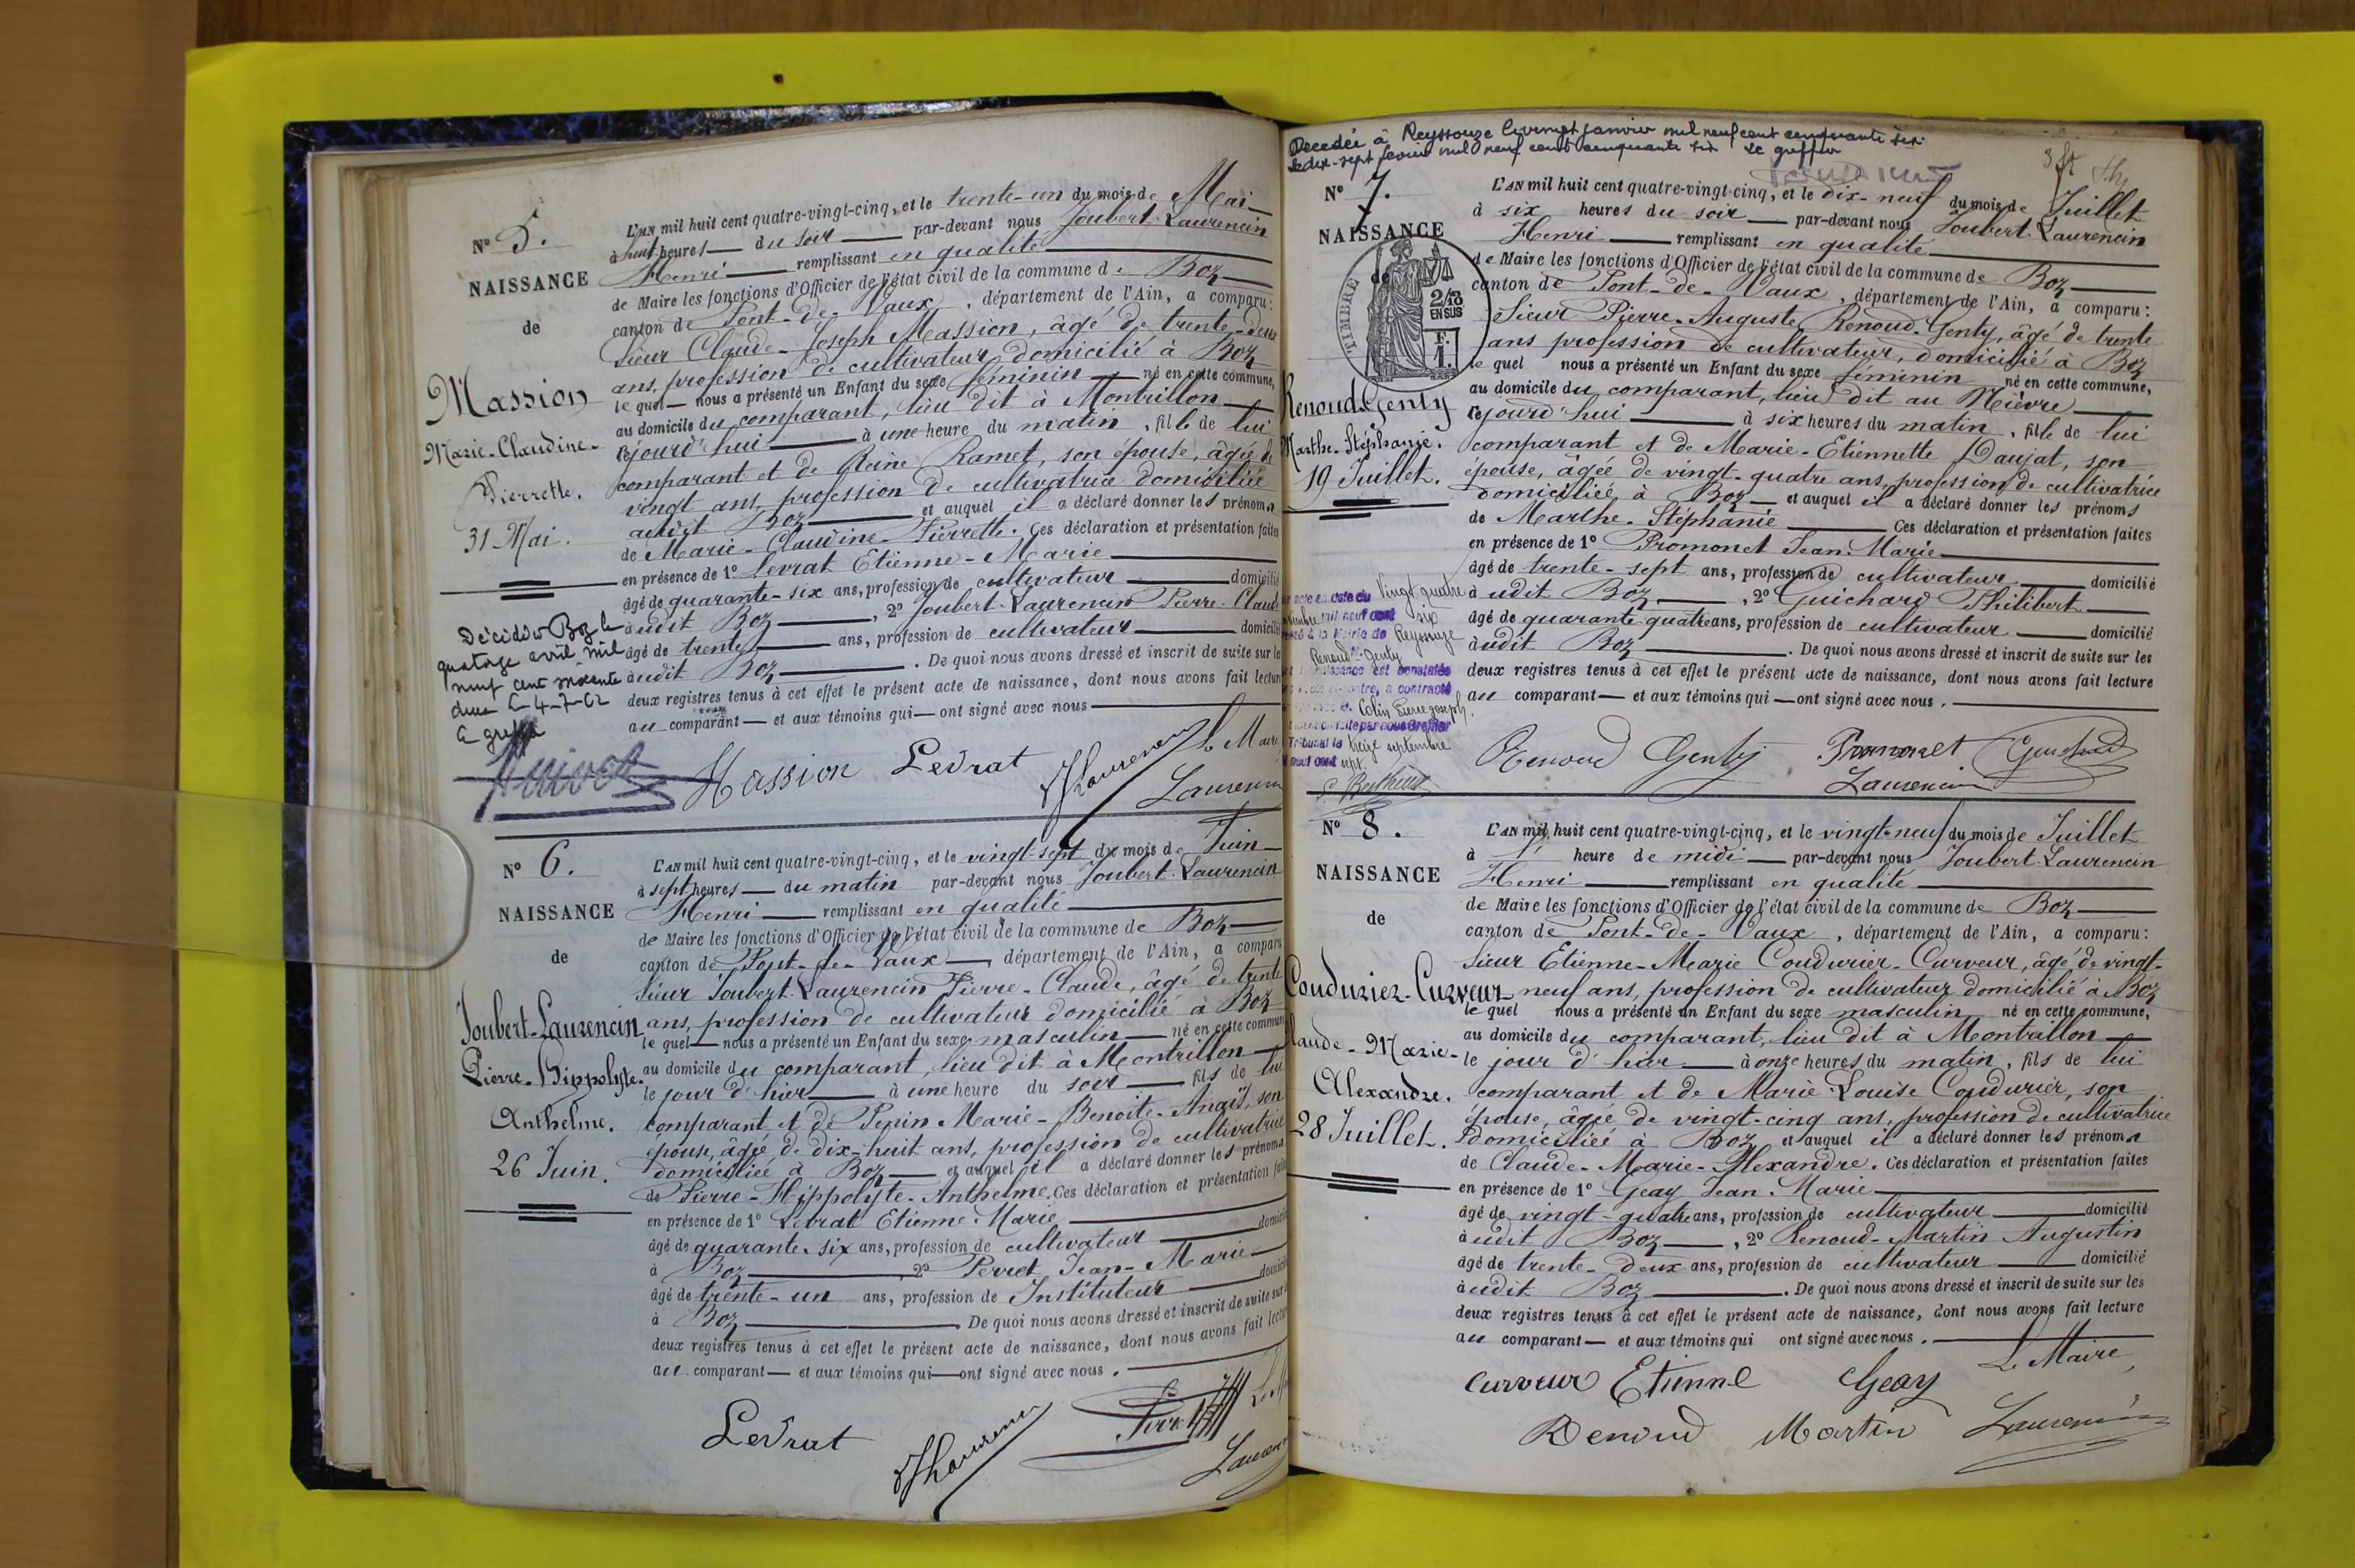 N° 5.
NAISSANCE
de
Massion
Marie-Claudine-
Pierrette.
31 Mai.
Décédée Boz le
quatorze avril mil
neuf cent soixante
deux 4-7-62
L'AN mil huit cent quatre-vingt-cinq, et le trente-un du mois de Mai
à huit heures du soir par-devant nous Joubert-Laurencin
Henri remplissant en qualité
de Maire les fonctions d'Officier de l'état civil de la commune de Boz
canton de Pont-de-Vaux, département de l'Ain, a comparu:
Sieur Claude-Joseph Massion, âgé de trente-deux
ans, profession de cultivateur domicilié à Boz
le quel nous a présenté un Enfant du sexe féminin né en cette commune,
au domicile du comparant, lieu dit à Montrillon
cejourd'hui à une heure du matin, fille de lui
comparant et de Reine Ramet, son épouse, âgée de
vingt ans, profession de cultivatrice domiciliée
audit Boz et auquel il a déclaré donner les prénoms
de Marie-Claudine-Pierrette. Ces déclaration et présentation faites
en présence de 1° Levrat Etienne-Marie
âgé de quarante-six ans, profession de cultivateur domicilié
àudit Boz, 2° Joubert-Laurencin Pierre-Claude
âgé de trente ans, profession de cultivateur domicilié
àudit Boz. De quoi nous avons dressé et inscrit de suite sur les
deux registres tenus à cet effet le présent acte de naissance, dont nous avons fait lecture
au comparant et aux témoins qui ont signé avec nous
Massion Levrat Laurencin Le Maire
Laurencin
N° 6.
NAISSANCE
de
Joubert-Laurencin
Pierre-Hippolyte-
Anthelme.
26 Juin.
L'AN mil huit cent quatre-vingt-cinq, et le vingt-sept du mois de Juin
à sept heures du matin par-devant nous Joubert-Laurencin
Henri remplissant en qualité
de Maire les fonctions d'Officier de l'état civil de la commune de Boz
canton de Pont-de-Vaux, département de l'Ain, a comparu
Sieur Joubert-Laurencin Pierre-Claude, âgé de trente
ans, profession de cultivateur domicilié à Boz
le quel nous a présenté un Enfant du sexe masculin né en cette commune
au domicile du comparant, lieu dit à Montrillon
le jour d'hier à une heure du soir fils de lui
comparant et de Pepin Marie-Benoite-Anaïs, son
épouse, âgée de dix-huit ans, profession de cultivatrice
domiciliée à Boz et auquel il a déclaré donner les prénoms
de Pierre-Hippolyte-Anthelme. Ces déclaration et présentation faites
en présence de 1° Levrat Etienne-Marie
âgé de quarante-six ans, profession de cultivateur domicilié
à Boz, 2° Perret Jean-Marie
âgé de trente-un ans, profession de Instituteur domicilié
à Boz. De quoi nous avons dressé et inscrit de suite sur
deux registres tenus à cet effet le présent acte de naissance, dont nous avons fait lecture
au comparant et aux témoins qui ont signé avec nous.
Levrat Laurencin Perret
Laurencin
Decedée à Reyssouze le vingt janvier mil neuf cent cinquante six.
Le dix-sept février mil neuf cent cinquante six Le greffier
N° 7.
NAISSANCE
de
TIMBRE
2/10
EN SUS
Renoud-Genty
Marthe-Stéphanie.
19 Juillet.
vingt quatre
mil neuf cent six
à la Mairie de Reyssouze
Renoud-Genty
Colin Pierre Joseph.
Tribunal le treize septembre
neuf cent sept.
L'AN mil huit cent quatre-vingt-cinq, et le dix-neuf du mois de Juillet
à six heures du soir par-devant nous Joubert-Laurencin
Henri remplissant en qualité
de Maire les fonctions d'Officier de l'état civil de la commune de Boz
canton de Pont-de-Vaux, département de l'Ain, a comparu:
Sieur Pierre-Auguste Renoud-Genty, âgé de trente
ans profession de cultivateur, domicilié à Boz
le quel nous a présenté un Enfant du sexe féminin né en cette commune,
au domicile du comparant, lieu dit au Nièvre
cejourd'hui à six heures du matin, fille de lui
comparant et de Marie-Etiennette Daujat, son
épouse, âgée de vingt-quatre ans, profession de cultivatrice
domiciliée à Boz et auquel il a déclaré donner les prénoms
de Marthe-Stéphanie Ces déclaration et présentation faites
en présence de 1° Promonet Jean-Marie
âgé de trente-sept ans, profession de cultivateur domicilié
àudit Boz, 2° Guichard Philibert
âgé de quarante-quatre ans, profession de cultivateur domicilié
àudit Boz. De quoi nous avons dressé et inscrit de suite sur les
deux registres tenus à cet effet le présent acte de naissance, dont nous avons fait lecture
au comparant et aux témoins qui ont signé avec nous.
Renoud Genty Promonet Guichard
Laurencin
N° 8.
NAISSANCE
de
Coudurier-Curveur
Claude-Marie-
Alexandre.
28 Juillet.
L'AN mil huit cent quatre-vingt-cinq, et le vingt-neuf du mois de Juillet
à heure de midi par-devant nous Joubert-Laurencin
Henri remplissant en qualité
de Maire les fonctions d'Officier de l'état civil de la commune de Boz
canton de Pont-de-Vaux, département de l'Ain, a comparu:
Sieur Etienne-Marie Coudurier-Curveur, âgé de vingt-
neuf ans, profession de cultivateur domicilié à Boz
le quel nous a présenté un Enfant du sexe masculin né en cette commune,
au domicile du comparant, lieu dit à Montrillon
le jour d'hier à onze heures du matin, fils de lui
comparant et de Marie-Louise Coudurier, son
épouse, âgée de vingt-cinq ans, profession de cultivatrice
domiciliée à Boz et auquel il a déclaré donner les prénoms
de Claude-Marie-Alexandre. Ces déclaration et présentation faites
en présence de 1° Geay Jean-Marie
âgé de vingt-quatre ans, profession de cultivateur domicilié
àudit Boz, 2° Renoud-Martin Augustin
âgé de trente-deux ans, profession de cultivateur domicilié
àudit Boz. De quoi nous avons dressé et inscrit de suite sur les
deux registres tenus à cet effet le présent acte de naissance, dont nous avons fait lecture
au comparant et aux témoins qui ont signé avec nous.
Curveur Etienne Geay Le Maire,
Renoud Martin Laurencin